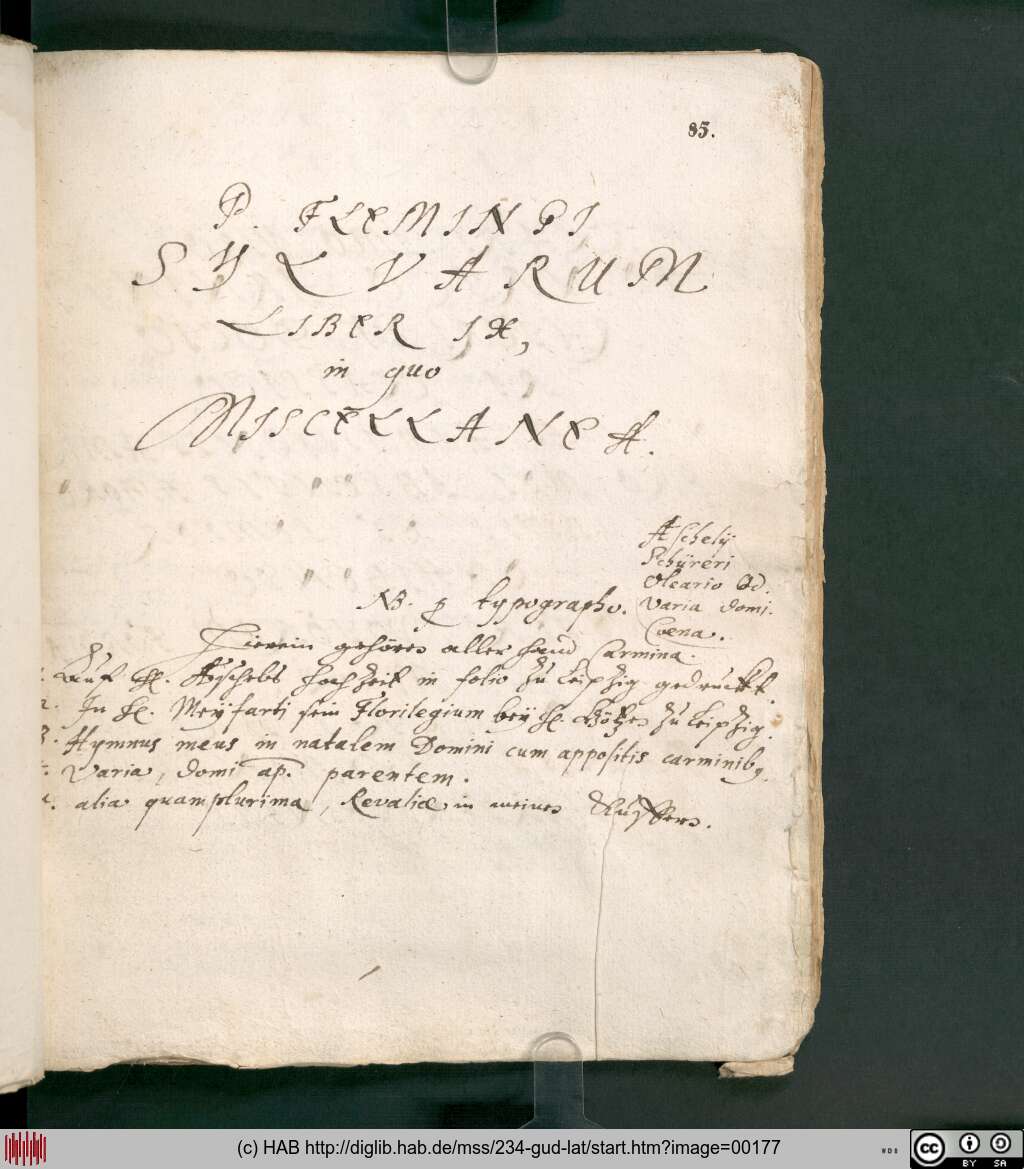 85.
P. FLEMINGI
SYLVARUM
LIBER IX,
in quo
MISCELLANEA.
Aschelij
Schüreri
Oleario
NB. typographo. Varia domi.
Coena.
Hierein gehören aller hand Carmina.
Auf Hochzeit in folio zu Leipzig gedruckt.
2. In H. Meyfarti sein Florilegium bey H. zu Leipzig.
3. Hymnus meus in natalem Domini cum appositis carminibq.
Varia, domi ap. parentem.
alia quamplurima, Revaliæ in meinen
(c) HAB http://diglib.hab.de/mss/234-gud-lat/start.htm?image=00177
WDB
cc
BY SA